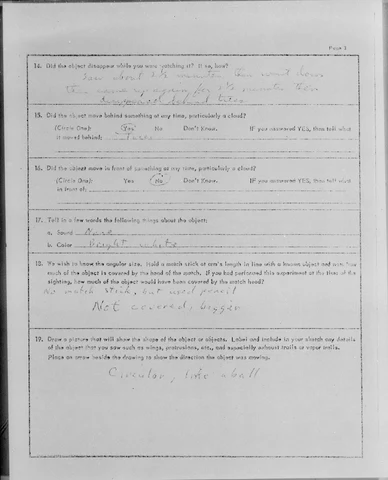 Page 3
14. Did the object disappear while you were watching it? If so, how?
about 2½ minutes then went down
then came up again for 2½ minutes then
behind trees
15. Did the object move behind something at any time, particularly a cloud?
(Circle One): Yes No Don't Know. IF you answered YES, then tell what
it moved behind: Trees
16. Did the object move in front of something at any time, particularly a cloud?
(Circle One): Yes No Don't Know. IF you answered YES, then tell what
in front of:
17. Tell in a few words the following things about the object:
a. Sound None
b. Color Bright white
18. We wish to know the angular size. Hold a match stick at arm's length in line with a known object and note how
much of the object is covered by the head of the match. If you had performed this experiment at the time of the
sighting, how much of the object would have been covered by the match head?
No match stick, but used pencil
Not covered, bigger
19. Draw a picture that will show the shape of the object or objects. Label and include in your sketch any details
of the object that you saw such as wings, protrusions, etc., and especially exhaust trails or vapor trails.
Place an arrow beside the drawing to show the direction the object was moving.
Circular, like a ball